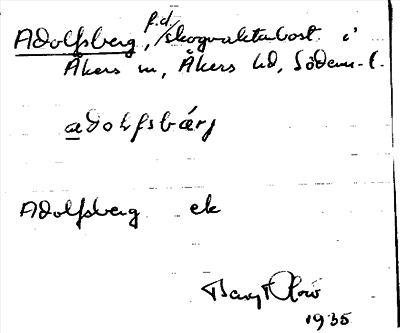 Adolfsberg, f.d. skogvaktarbost. i
Åkers sn, Åkers hd, Söderm. l.
adolfsbärj
Adolfsberg ek
1935